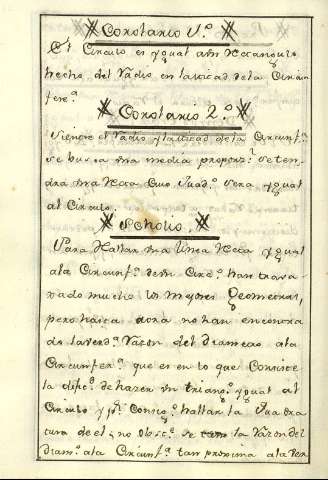 Corolario 1.º
El Circulo es ygual a un Rectangulo
hecho, del Radio, en la mitad de la Circun
fer.ª
Corolario 2.º
Si entre el Radio y la mitad de la Circunf.ª
se busca una media proporz.l se ten
dra una Recta Cuio Quad.º sera ygual
al Circulo.
Scholio.
Para Hallar una Linea Recta ygual
a la Circunf.ª de un Circ.º han trava
xado mucho los mayores Geometras,
pero hasta aora no han encontra
do la verd.ª Razon del diametro a la
Circunfer.ª que es en lo que Consiste
la dific.d de hazer un triang.º ygual al
Circulo y p.r Consig.te hallar la Quadra
tura de el, no obst.e la Razon del
Diam.º a la Circunf.ª tan proxima a la Ver